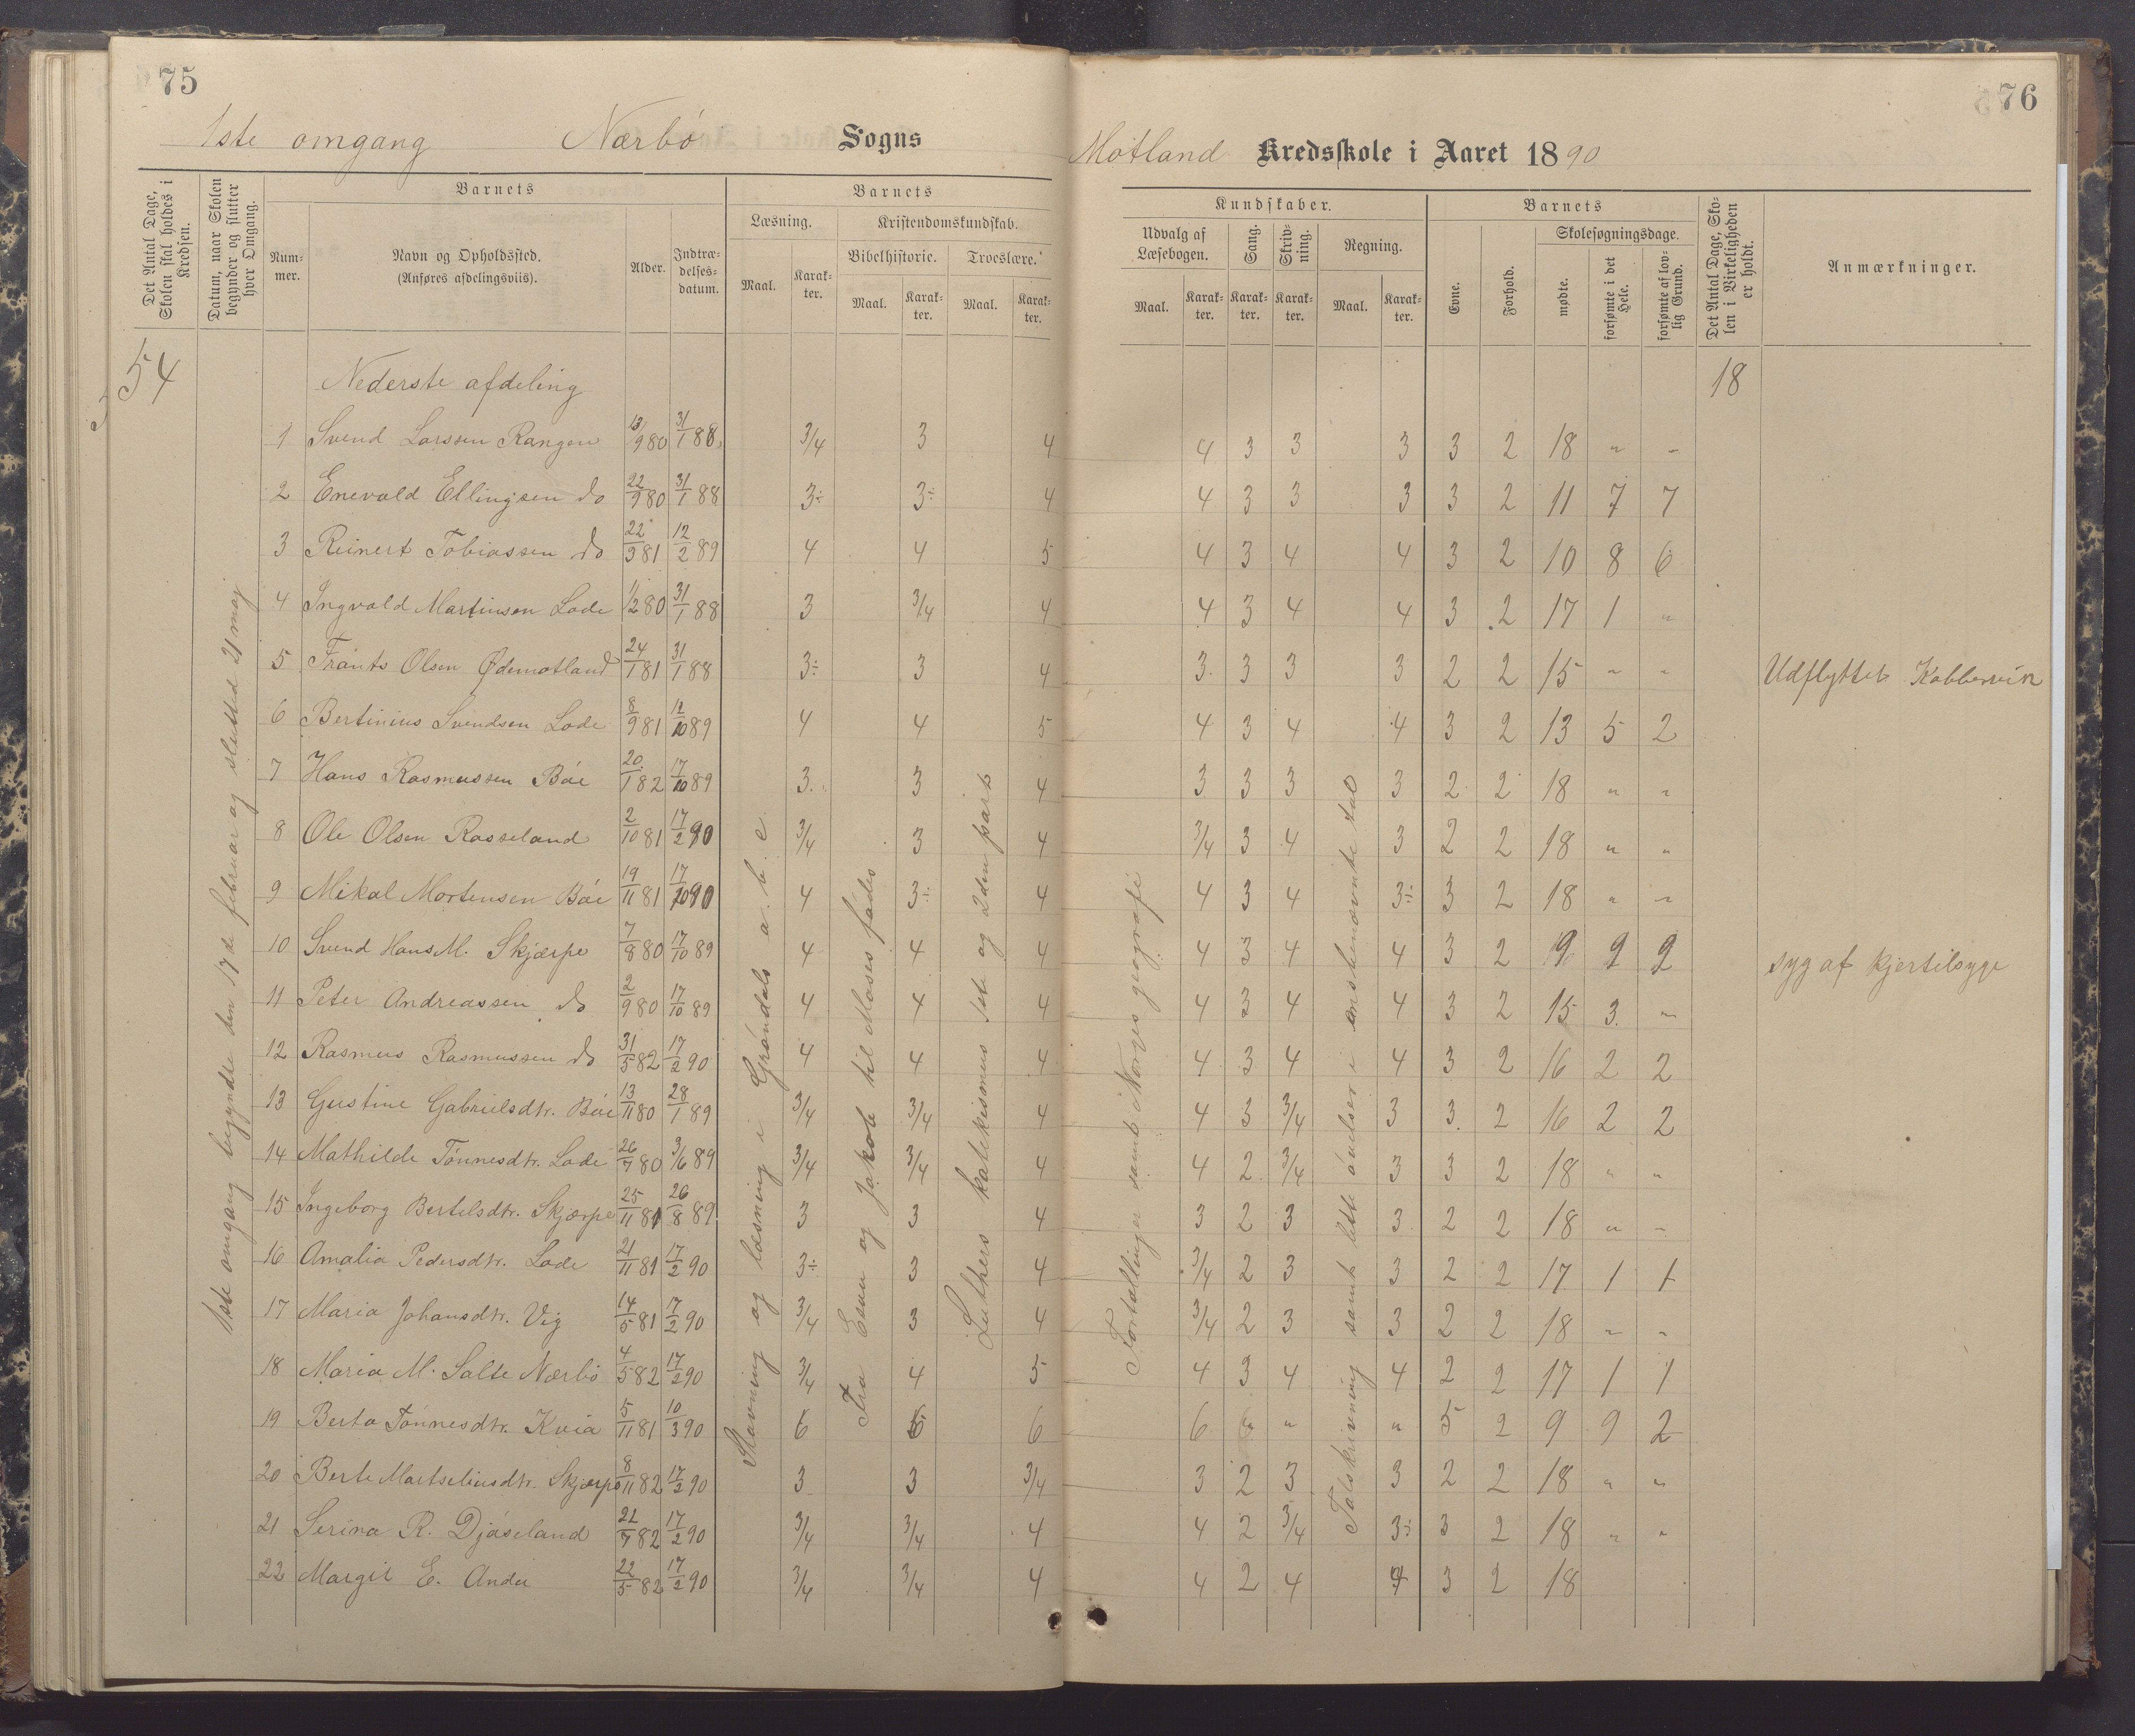 75
1ste omgang Nærbö Sogns
Det Antal Dage, Skolen skal holdes i Kredsen.
Datum, naar Skolen begynder og slutter hver Omgang.
Barnets
Num-mer.
Navn og Opholdssted.
(Anføres afdelingsviis).
Alder.
Indtræ-delses-datum.
Barnets
Læsning.
Kristendomskundskab.
Maal. Karak-ter.
Bibelhistorie.
Troeslære.
Maal. Karak-ter. Maal. Karak-ter.
54
1ste omgang begyndte den 17de februar og slutted 21 maj
Nederste afdeling
1 Svend Larssen Rangen 13/9 80 31/1 88 3/4 3 4
2 Enevald Ellingsen do 22/9 80 31/1 88 3÷ 3÷ 4
3 Reinert Tobiassen do 22/3 81 12/2 89 4 4 5
4 Ingvald Martinsen Lode 1/2 80 31/1 88 3 3/4 4
5 Frants Olsen Ødemotland 24/1 81 31/1 88 3÷ 3 4
6 Bertinius Svendsen Lode 8/9 81 /10 89 4 4 5
7 Hans Rasmussen Böe 20/1 82 17/10 89 3 3 4
8 Ole Olsen Rosseland 2/10 81 17/2 90 3/4 3 4
9 Mikal Mortensen Böe 19/11 81 17/10 90 4 3÷ 4
10 Svend Hans M. Skjærpe 7/8 80 17/10 89 4 4 4
11 Peter Andreassen do 2/9 80 17/10 89 4 4 4
12 Rasmus Rasmussen do 31/5 82 17/2 90 4 4 4
13 Gustine Gabrielsdtr. Böe 13/11 80 28/1 89 3/4 3/4 4
14 Mathilde Tönnesdtr. Lode 26/7 80 3/6 89 3/4 3/4 4
15 Ingeborg Bertelsdtr. Skjærpe 25/11 81 26/8 89 3 3 4
16 Amalia Pedersdtr. Lode 21/11 81 17/2 90 3÷ 3 4
17 Maria Johansdtr. Vig 14/5 81 17/2 90 3/4 3 4
18 Maria M. Salte Nærbö 4/5 82 17/2 90 3/4 4 5
19 Berta Tönnesdtr. Kvia 5/11 81 10/3 90 6 6 6
20 Berte Martseliusdtr. Skjærpe 8/11 82 17/2 90 3 3 3/4
21 Serina R. Djöseland 21/7 82 17/2 90 3/4 3/4 4
22 Margit E. Anda 22/5 82 17/2 90 3/4 3/4 4
Stavning og læsning i Gröndals a. b. c.
Fra Esau og Jakob til Moses födes
Luthers katekismus 1ste og 2den part
76
Motland Kredsskole i Aaret 1890
Kundskaber.
Udvalg af Læsebogen.
Sang.
Skriv-ning.
Regning.
Maal. Karak-ter. Karak-ter. Karak-ter. Maal. Karak-ter.
Barnets
Evne.
Forhold.
Skolesøgningsdage.
mødte.
forsømte i det Hele.
forsømte af lov-lig Grund.
Det Antal Dage, Sko-len i Virkeligheden er holdt.
Anmærkninger.
18
4 3 3 3 3 2 18 " "
4 3 3 3 3 2 11 7 7
4 3 4 4 3 2 10 8 6
4 3 4 4 3 2 17 1 "
3 3 3 3 2 2 15 " " Udflyttet Kobbervik
4 3 4 4 3 2 13 5 2
3 3 3 3 2 2 18 " "
3/4 3 4 3 2 2 18 " "
4 3 4 3÷ 3 2 18 " "
4 3 4 4 3 2 9 9 9 syg af kjertelsyge
4 3 4 4 3 2 15 3 "
4 3 4 4 3 2 16 2 2
4 3 3/4 3 3 2 16 2 2
4 2 3/4 3 3 2 18 " "
3 2 3 3 2 2 18 " "
3/4 2 3 3 2 2 17 1 1
3/4 2 3 3 2 2 18 " "
4 3 4 4 2 2 17 1 1
6 " " " 5 2 9 9 2
3 2 3 3 2 2 18 " "
4 2 3/4 3÷ 3 2 18 " "
4 2 4 4 3 2 18
Fortællinger samt Norges geografi
Talskrivning samt lette övelser i enstbenævnte tal